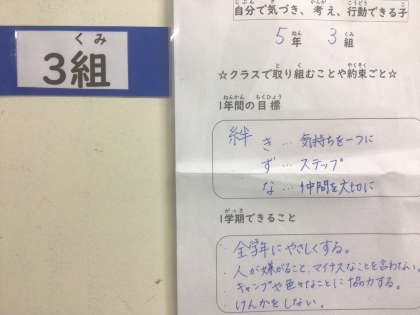 くみ
3組
自分で気づき、考え、行動できる子
5年 3組
☆クラスで取り組むことや約束ごと☆
1年間の目標
絆 き…気持ちを一つに
ず…ステップ
な…仲間を大切に
1学期できること
・全学年にやさしくする。
・人が嫌がること、マイナスなことを言わない。
・キャンプや色々なことに協力する。
・けんかをしない。